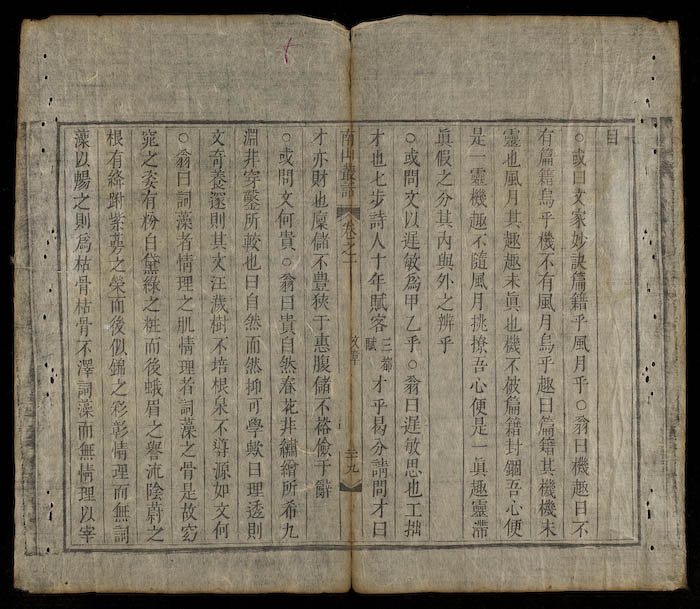 目
○或曰文家妙訣篇籍乎風月乎○翁曰機趣曰不
有篇籍烏乎機不有風月烏乎趣曰篇籍其機機未
靈也風月其趣趣未眞也機不被篇籍封錮吾心便
是一靈機趣不隨風月挑撩吾心便是一眞趣靈滯
眞假之分其內與外之辨乎
○或問文以遲敏爲甲乙乎○翁曰遲敏思也工拙
才也七步詩人十年賦客三都賦才乎易分請問才曰
南山叢話 卷之一 文章 三十九
才亦財也稟儲不豐狹于惠腹儲不裕儉于辭
○或問文何貴○翁曰貴自然春花非繡繪所希九
淵非穿鑿所較也曰自然而然抑可學歟曰理透則
文奇養邃則其文汪濊樹不培根泉不導源如文何
○翁曰詞藻者情理之肌情理若詞藻之骨是故窈
窕之姿有粉白黛綠之粧而後蛾眉之譽流陰蔚之
根有絳跗紫萼之榮而後似錦之彩彰情理而無詞
藻以暢之則爲枯骨枯骨不澤詞藻而無情理以宰